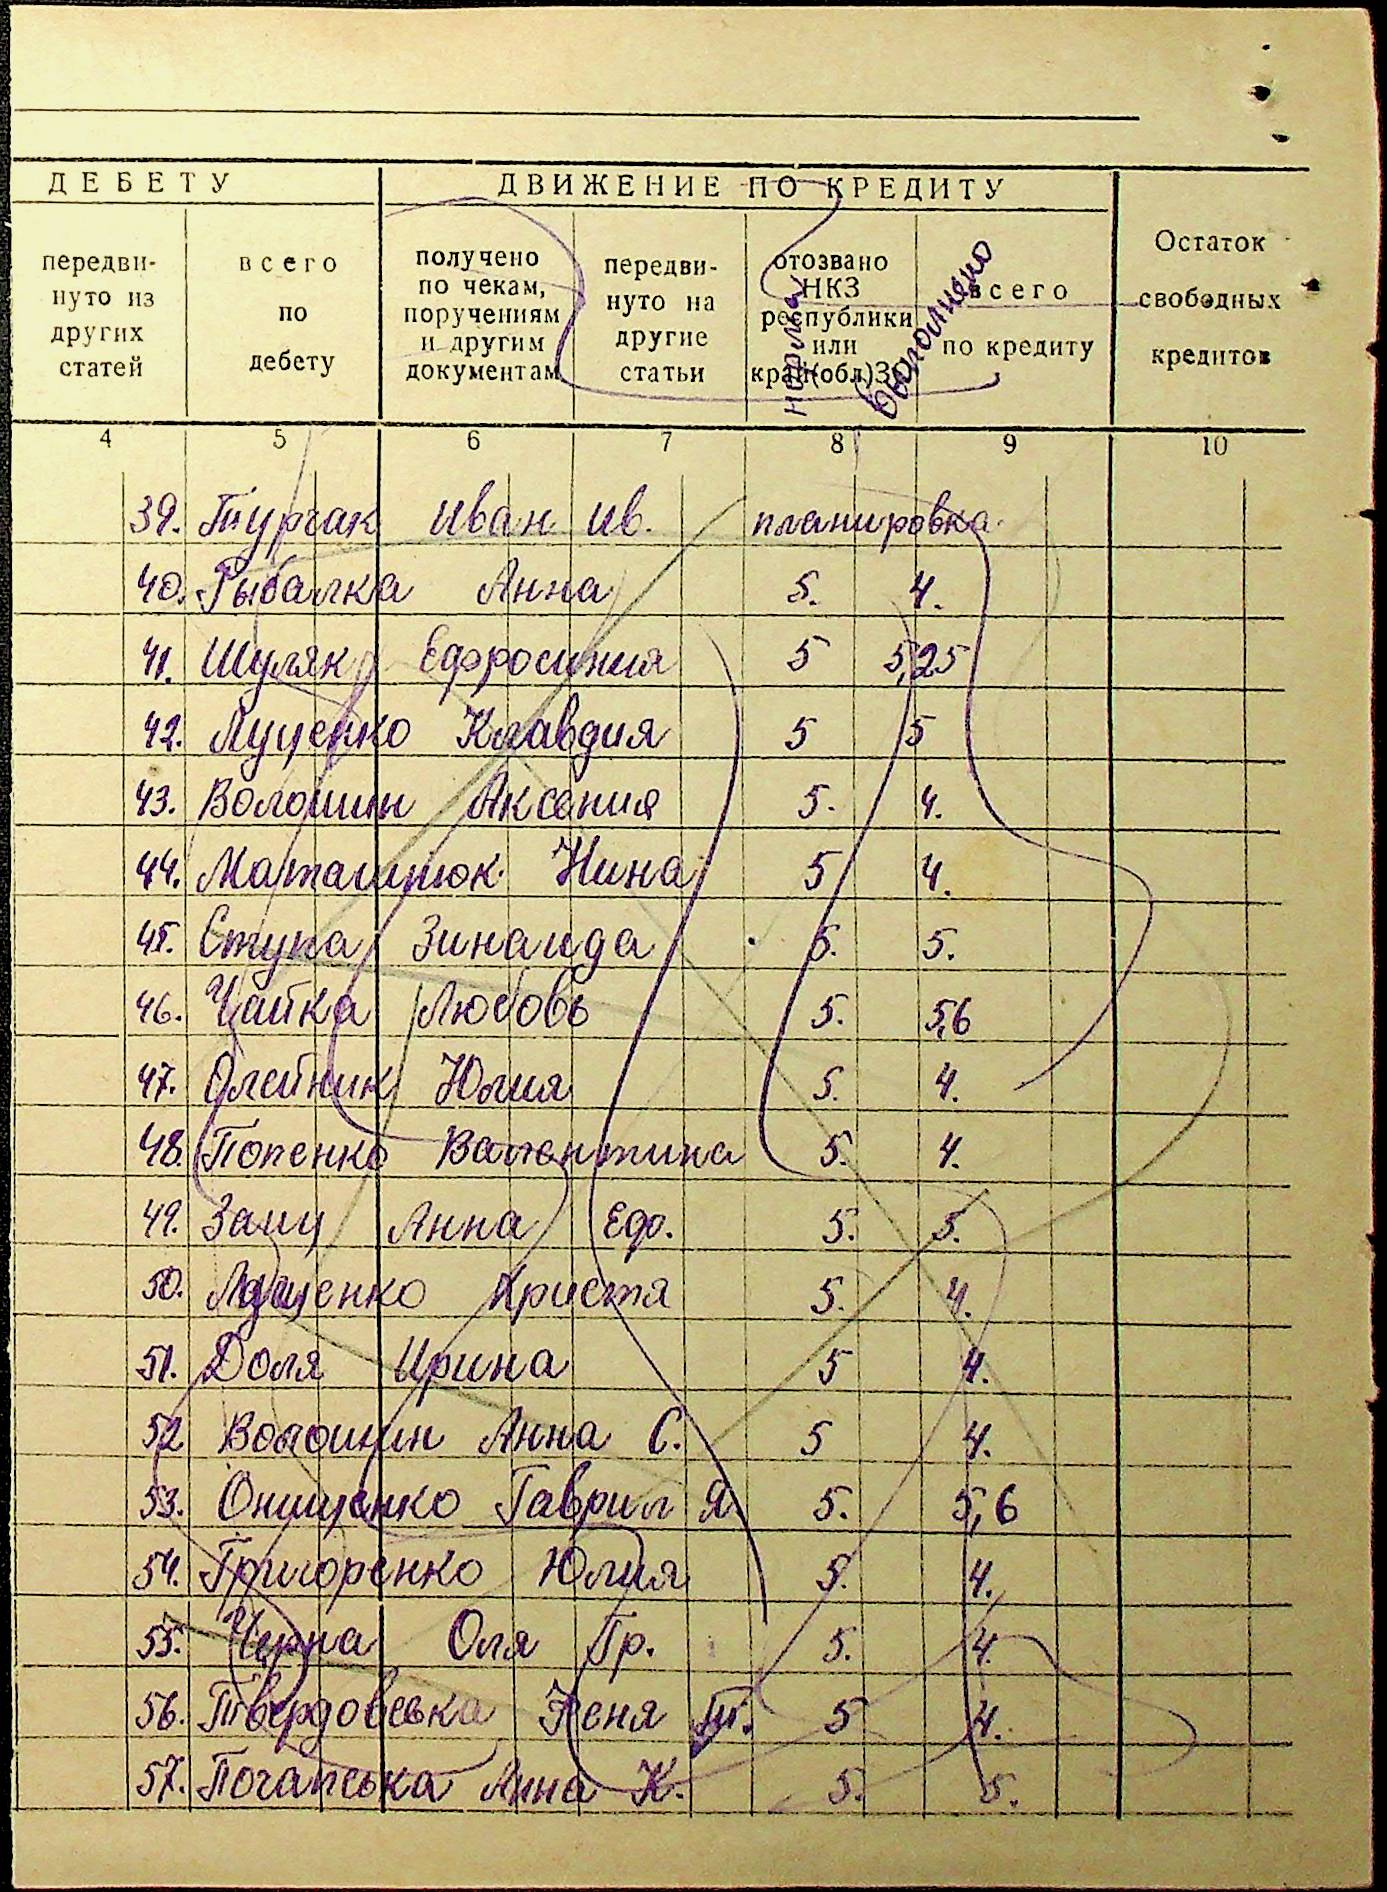 ДЕБЕТУ ДВИЖЕНИЕ ПО КРЕДИТУ
передвинуто из других статей
всего по дебету
получено по чекам, поручениям и другим документам
передвинуто на другие статьи
отозвано НКЗ республики или край(обл)З
всего по кредиту
Остаток свободных кредитов
норма выполнено
4 5 6 7 8 9 10
39. Турчак Иван Ив. планировка.
40. Рыбалка Анна 5. 4.
41. Шуляк Ефросиния 5 5,25
42. Луценко Клавдия 5 5
43. Волошин Аксения 5. 4.
44. Нина 5 4.
45. Ступа Зинаида 5. 5.
46. Чайка Любовь 5. 5,6
47. Олейник Юлия 5. 4.
48. Попенко Валентина 5. 4.
49. Заиц Анна Еф. 5. 5.
50. Христя 5. 4.
51. Доля Ирина 5 4.
52 Волошин Анна С. 5 4.
53. Онищенко Гаврил Я. 5. 5,6
54. Григоренко Юлия 5. 4.
55. Черна Оля Гр. 5. 4.
56. Твердовська Женя Т. 5 4.
57. Почапська Анна К. 5. 5.